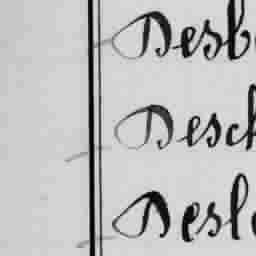 Desb
Desch
Desl